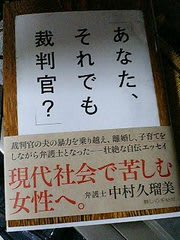 「あなた、
それでも
裁判官？」
裁判官の夫の暴力を乗り越え、離婚し、子育てを
しながら弁護士となった―壮絶な自伝エッセイ
現代社会で苦しむ
女性へ。
弁護士 中村久瑠美